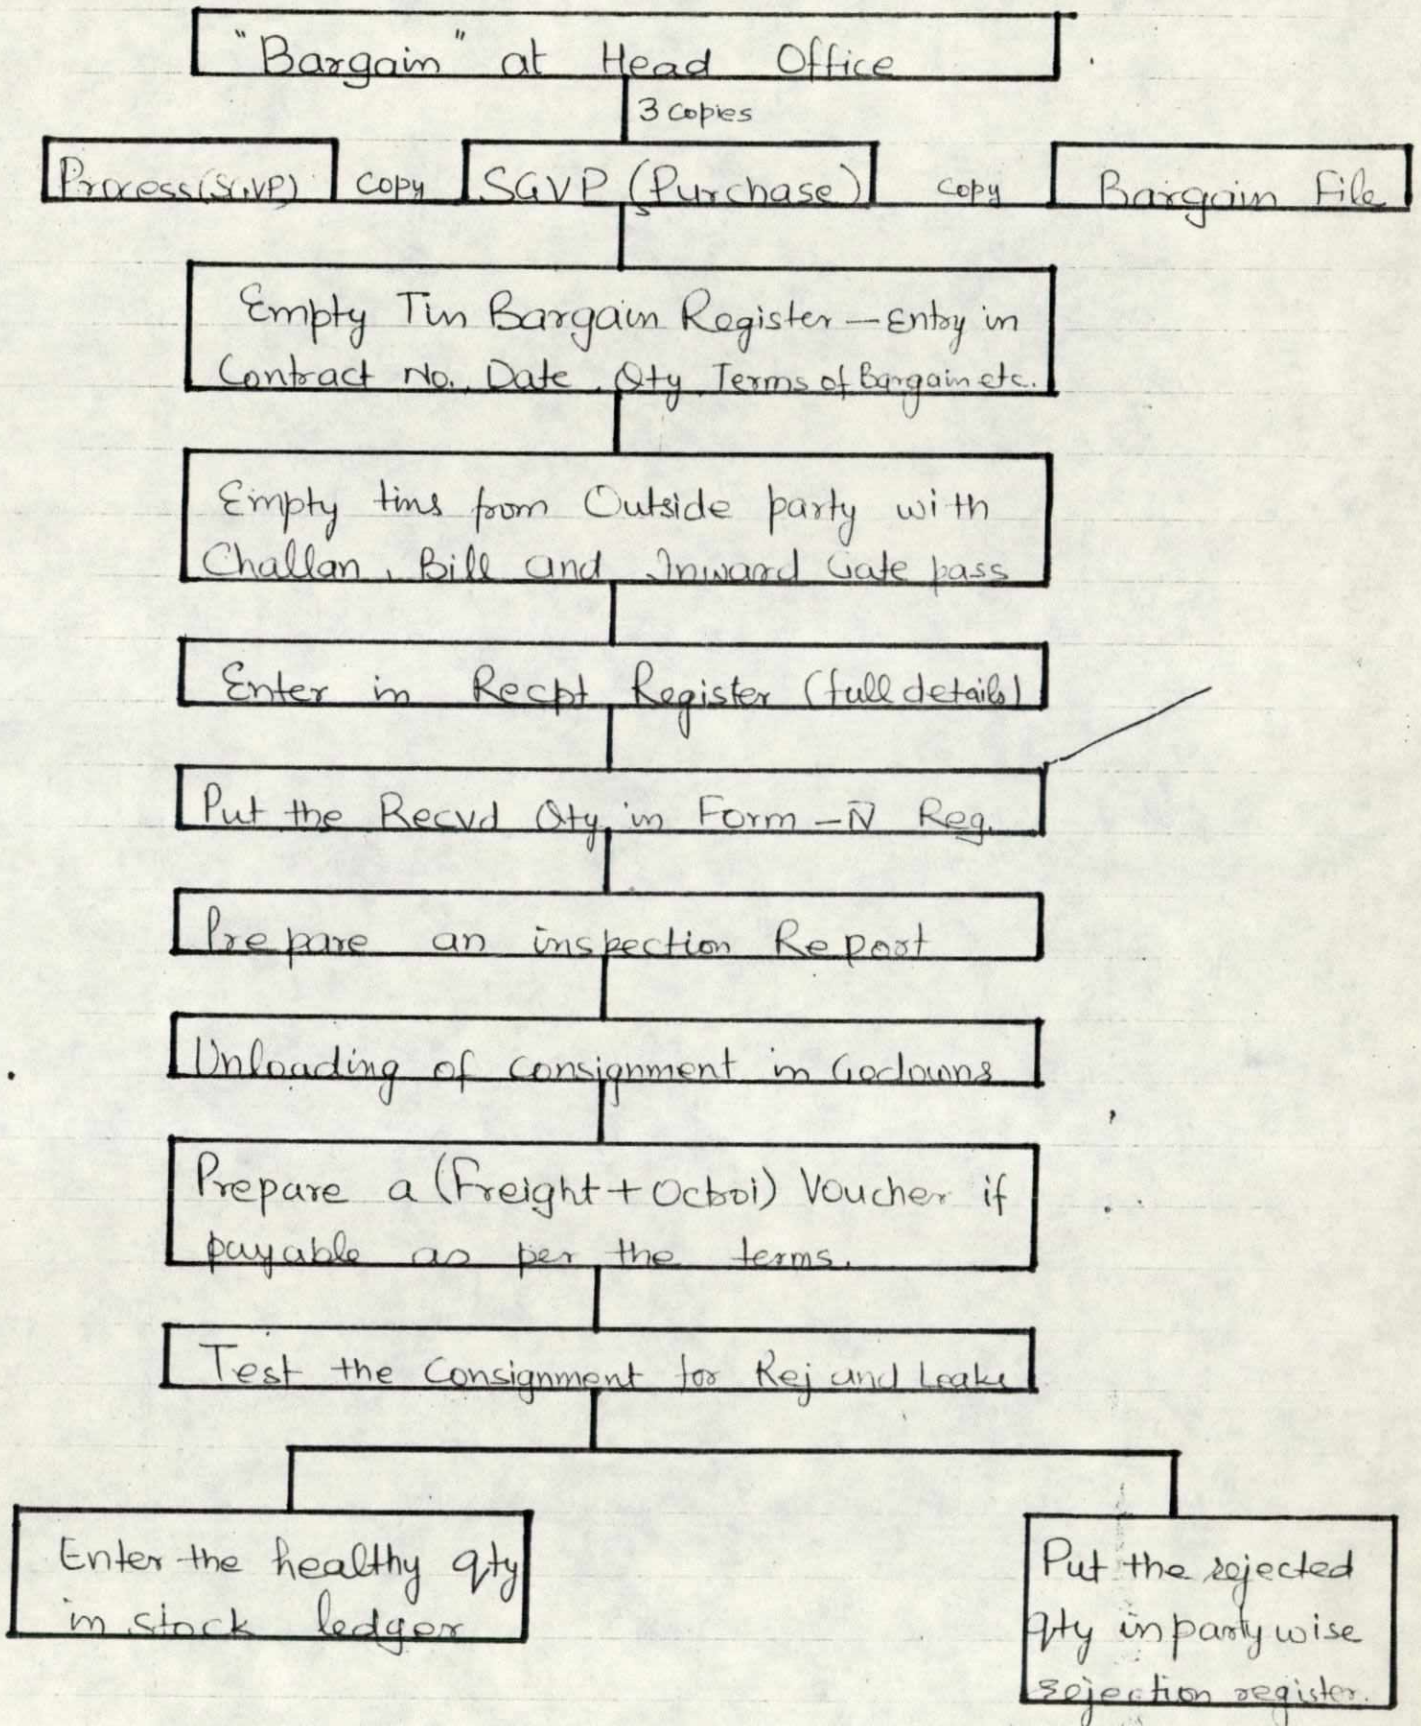 "Bargain" at Head Office
3 copies
Process(SGVP) copy SGVP (Purchase) copy Bargain File
Empty Tin Bargain Register — Entry in
Contract No. Date, Qty, Terms of Bargain etc.
Empty tins from Outside party with
Challan, Bill and Inward Gate pass
Enter in Recpt Register (full details)
Put the Recvd Qty in Form – Reg.
Prepare an inspection Report
Unloading of consignment in Godowns
Prepare a (Freight + Octroi) Voucher if
payable as per the terms.
Test the Consignment for Rej and Leaks
Enter the healthy qty
in stock ledger
Put the rejected
qty in party wise
rejection register.